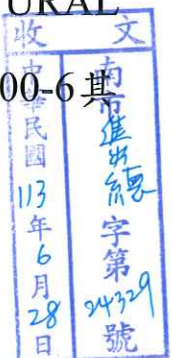 URAL
00-6其
收文
中華民國113年6月28日
南市進字第24329號